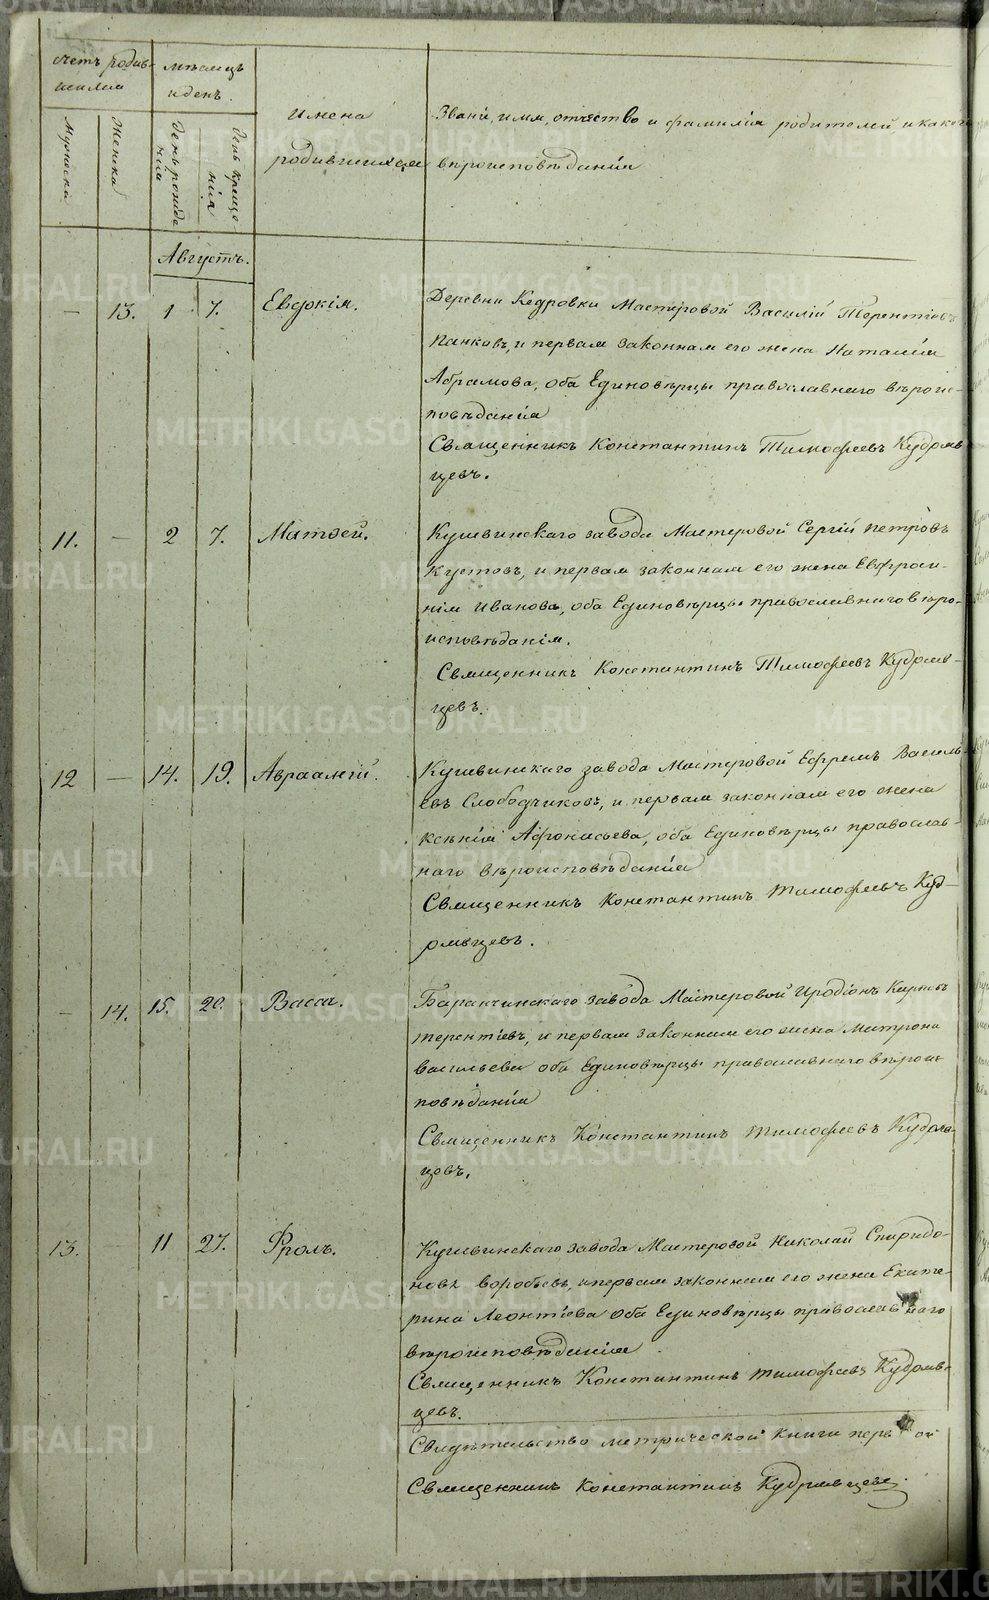 счетъ родив-
шихся
мѣсяцъ
и день.
Имена
родившихся
Званіе, имя, отчество и фамилія родителей, и какого
вѣроисповѣданія
Мужска
Женска
День рожде
нія
День креще-
нія
Августъ.
— 13. 1 7. Евдокія.
Деревни Кедровки Мастеровой Василій Терентіевъ
Панковъ, и первая законная его жена Наталія
Абрамова, оба Единовѣрцы православнаго вѣроис-
повѣданія
Священникъ Константинъ Тимофеевъ Кудряв
цевъ.
11. — 2 7. Матвей.
Кушвинскаго завода Мастеровой Сергій Петровъ
Кустовъ, и первая законная его жена Евфроси-
нія Иванова, оба Единовѣрцы православнаго вѣро-
исповѣданія.
Священникъ Константинъ Тимофеевъ Кудряв-
цевъ.
12 — 14. 19. Авраамій.
Кушвинскаго завода Мастеровой Ефремъ Василь
евъ Слободчиковъ, и первая законная его жена
Ксѣнія Афонасьева, оба Единовѣрцы православ-
наго вѣроисповѣданія
Священникъ Константинъ Тимофеевъ Куд-
рявцевъ.
— 14. 15. 20. Васса.
Баранчинскаго завода Мастеровой Иродіонъ Карповъ
Терентіевъ, и первая законная его жена Матрона
Васильева оба Единовѣрцы православнаго вѣроис
повѣданія
Священникъ Константинъ Тимофеевъ Кудряв-
цевъ.
13. 11 27. Фролъ.
Кушвинскаго завода Мастеровой Николай Спиридо-
новъ Воробьевъ, и первая законная его жена Екате-
рина Леонтіева оба Единовѣрцы православнаго
вѣроисповѣданія
Священникъ Константинъ Тимофеевъ Кудряв-
цевъ.
Свидѣтельство метрической книги первой
Священникъ Константинъ Кудрявцевъ.
METRIKI.GASO-URAL.RU